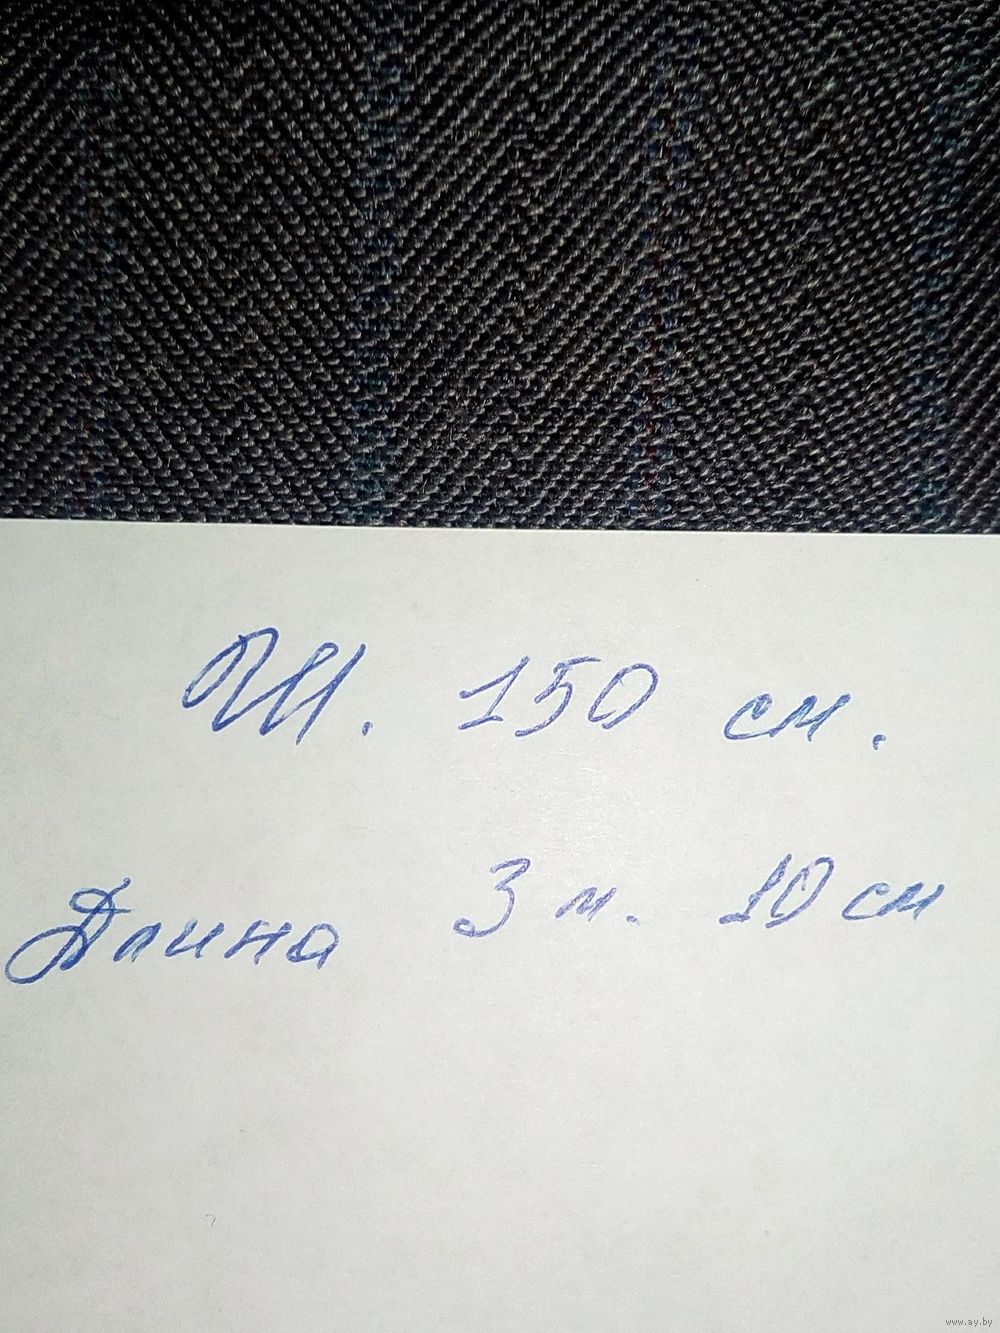 Ш. 150 см.
Длина 3 м. 10 см
www.ay.by